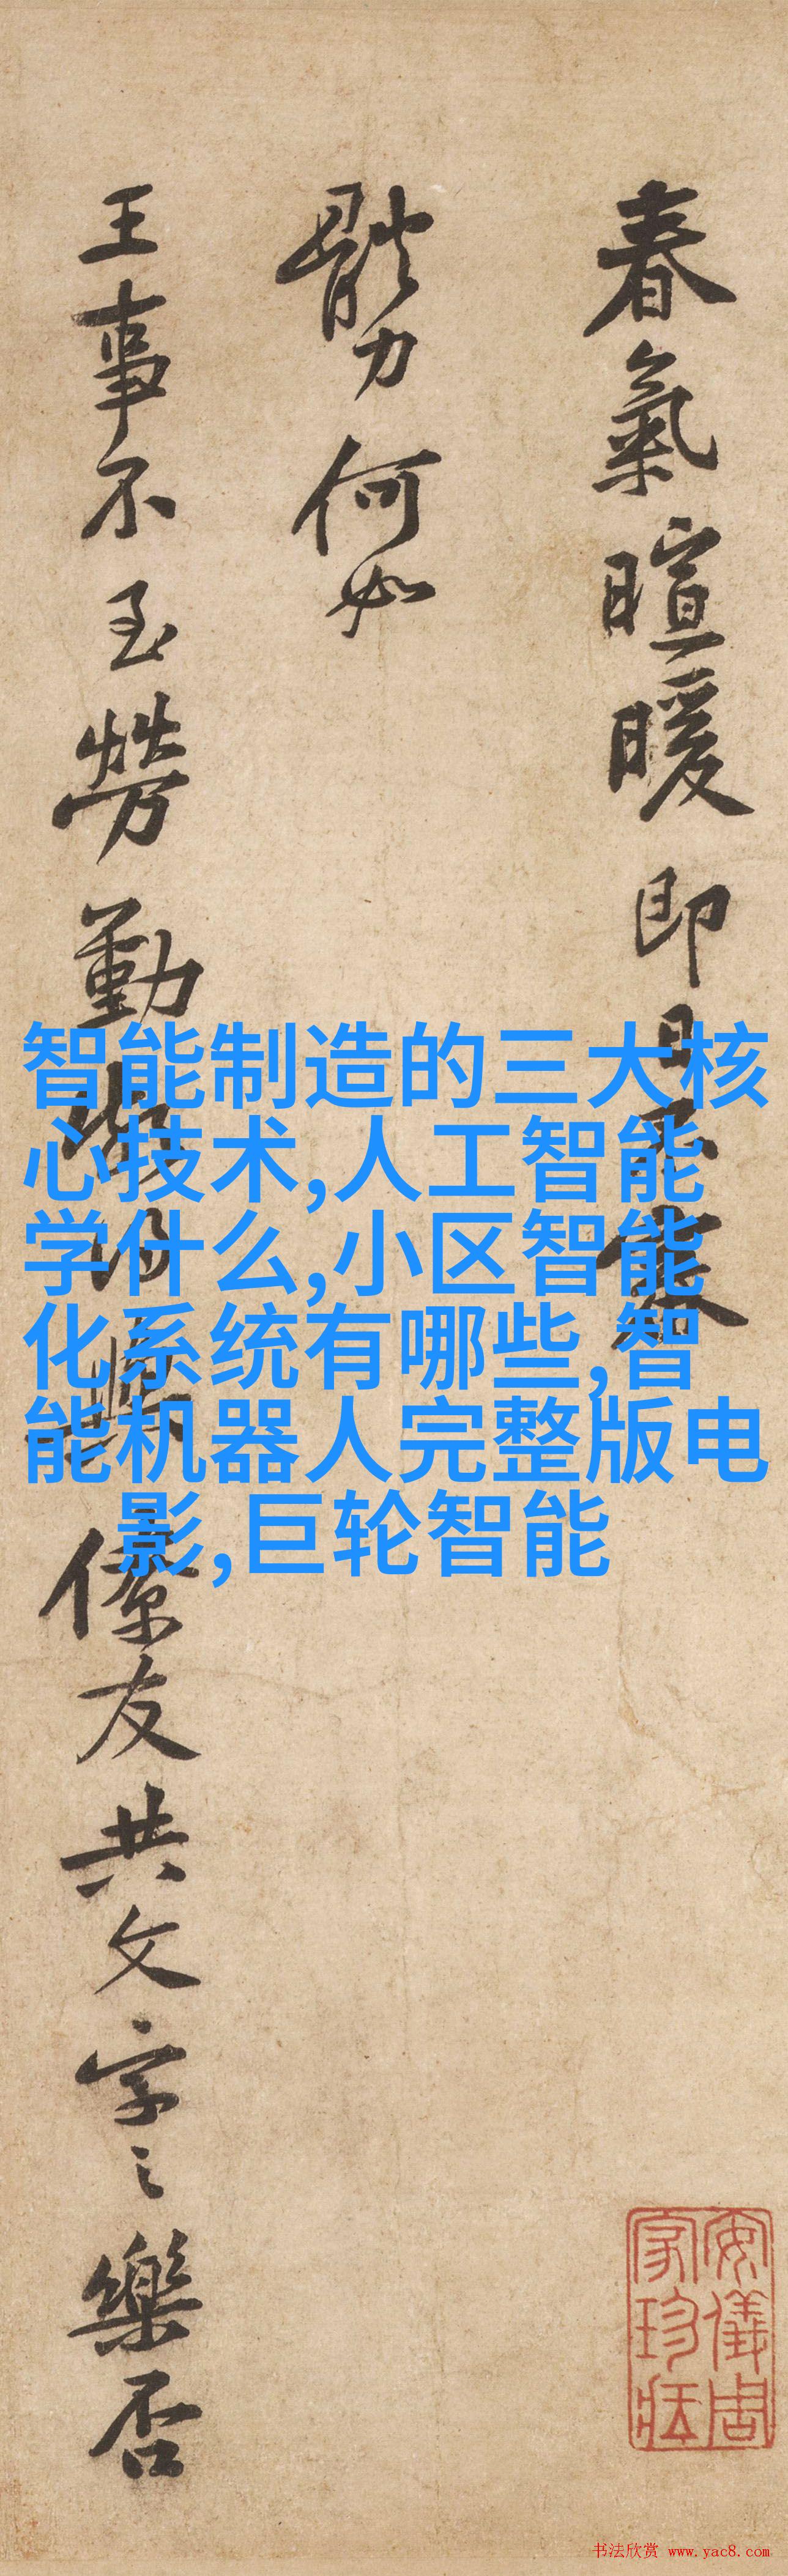 春氣暄暖即日不審
體力何如
王事不至勞勤
僚友共文字之樂否
智能制造的三大核
心技术,人工智能
学什么,小区智能
化系统有哪些,智
能机器人完整版电
影,巨轮智能
安儀周
家珍藏
书法欣赏 www.yac8.com